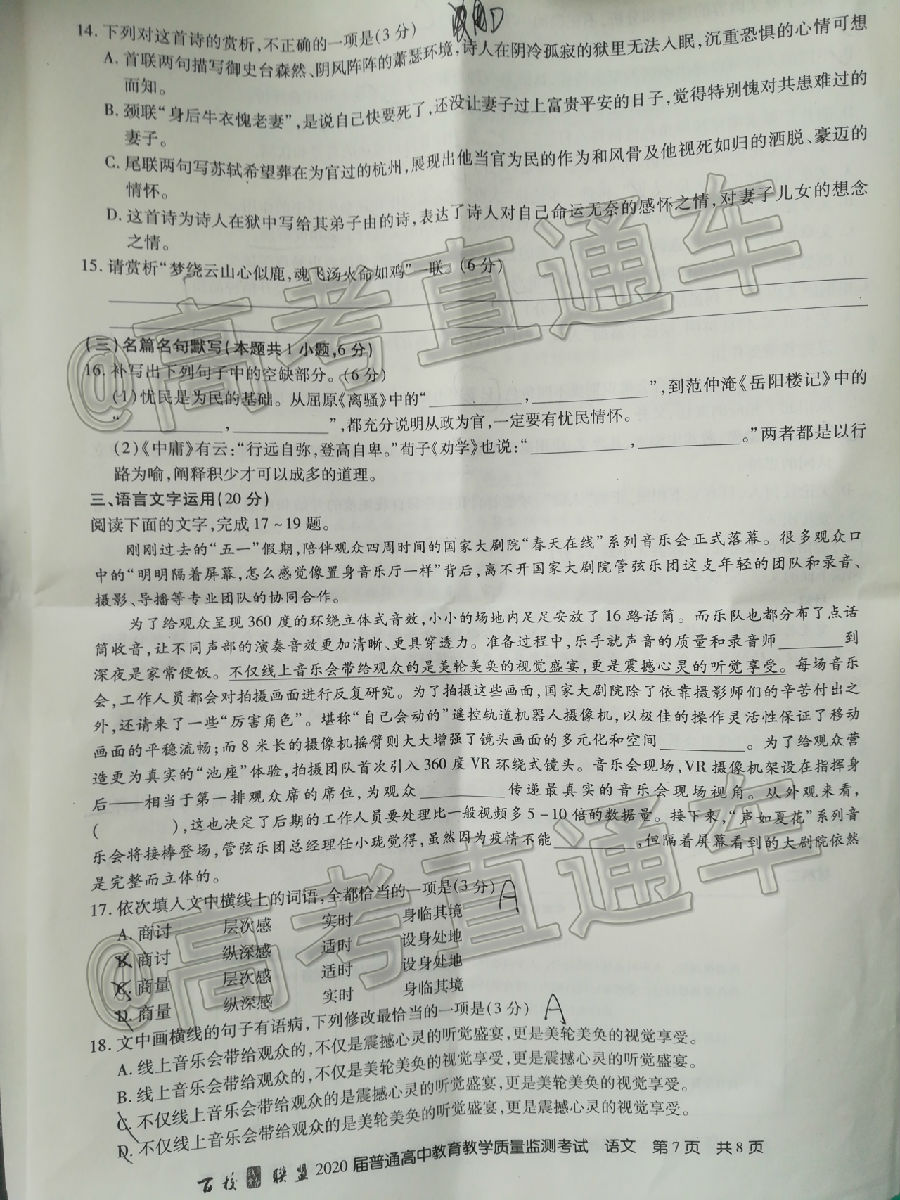 14. 下列对这首诗的赏析,不正确的一项是(3 分)
A. 首联两句描写御史台森然、阴风阵阵的萧瑟环境,诗人在阴冷孤寂的狱里无法入眠,沉重恐惧的心情可想
而知。
B. 颈联“身后牛衣愧老妻”,是说自己快要死了,还没让妻子过上富贵平安的日子,觉得特别愧对共患难过的
妻子。
C. 尾联两句写苏轼希望葬在为官过的杭州,展现出他当官为民的作为和风骨及他视死如归的洒脱、豪迈的
情怀。
D. 这首诗为诗人在狱中写给其弟子由的诗,表达了诗人对自己命运无奈的感怀之情,对妻子儿女的想念
之情。
15. 请赏析“梦绕云山心似鹿,魂飞汤火命如鸡”一联。(6 分)
(三)名篇名句默写(本题共 1 小题,6 分)
16. 补写出下列句子中的空缺部分。(6 分)
(1)忧民是为民的基础。从屈原《离骚》中的“________,________”,到范仲淹《岳阳楼记》中的
“________,________”,都充分说明从政为官,一定要有忧民情怀。
(2)《中庸》有云:“行远自弥,登高自卑。”荀子《劝学》也说:“________,________。”两者都是以行
路为喻,阐释积少才可以成多的道理。
三、语言文字运用(20 分)
阅读下面的文字,完成 17~19 题。
刚刚过去的“五一”假期,陪伴观众四周时间的国家大剧院“春天在线”系列音乐会正式落幕。很多观众口
中的“明明隔着屏幕,怎么感觉像置身音乐厅一样”背后,离不开国家大剧院管弦乐团这支年轻的团队和录音、
摄影、导播等专业团队的协同合作。
为了给观众呈现 360 度的环绕立体式音效,小小的场地内足足安放了 16 路话筒。而乐队也都分布了点话
筒收音,让不同声部的演奏音效更加清晰、更具穿透力。准备过程中,乐手就声音的质量和录音师________到
深夜是家常便饭。不仅线上音乐会带给观众的是美轮美奂的视觉盛宴,更是震撼心灵的听觉享受。每场音乐
会,工作人员都会对拍摄画面进行反复研究。为了拍摄这些画面,国家大剧院除了依靠摄影师们的辛苦付出之
外,还请来了一些“厉害角色”。堪称“自己会动的”遥控轨道机器人摄像机,以极佳的操作灵活性保证了移动
画面的平稳流畅;而 8 米长的摄像机摇臂则大大增强了镜头画面的多元化和空间________。为了给观众营
造更为真实的“池座”体验,拍摄团队首次引入 360 度 VR 环绕式镜头。音乐会现场,VR 摄像机架设在指挥身
后——相当于第一排观众席的席位,为观众________传递最真实的音乐会现场视角。从外观来看,
(________),这也决定了后期的工作人员要处理比一般视频多 5-10 倍的数据量。接下来,“声如夏花”系列音
乐会将接棒登场,管弦乐团总经理任小珑觉得,虽然因为疫情不能________,但隔着屏幕看到的大剧院依然
是完整而立体的。
17. 依次填入文中横线上的词语,全都恰当的一项是(3 分) A
A. 商讨 层次感 实时 身临其境
B. 商讨 纵深感 适时 设身处地
C. 商量 层次感 适时 设身处地
D. 商量 纵深感 实时 身临其境
18. 文中画横线的句子有语病,下列修改最恰当的一项是(3 分) A
A. 线上音乐会带给观众的,不仅是震撼心灵的听觉盛宴,更是美轮美奂的视觉享受。
B. 线上音乐会带给观众的,不仅是美轮美奂的视觉享受,更是震撼心灵的听觉盛宴。
C. 不仅线上音乐会带给观众的是震撼心灵的听觉盛宴,更是美轮美奂的视觉享受。
D. 不仅线上音乐会带给观众的是美轮美奂的听觉盛宴,更是震撼心灵的视觉享受。
百校联盟 2020 届普通高中教育教学质量监测考试 语文 第 7 页 共 8 页
@高考直通车
@高考直通车